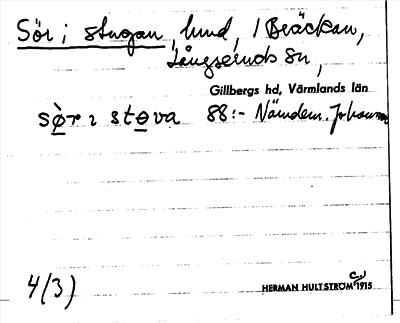 Sör i stugan, hund, 1 Bräckan,
Långseruds sn,
Gillbergs hd, Värmlands län
sø̀r ı støva 88:- Nämdem. Johansson
4/3)
HERMAN HULTSTRÖM C:a 1915